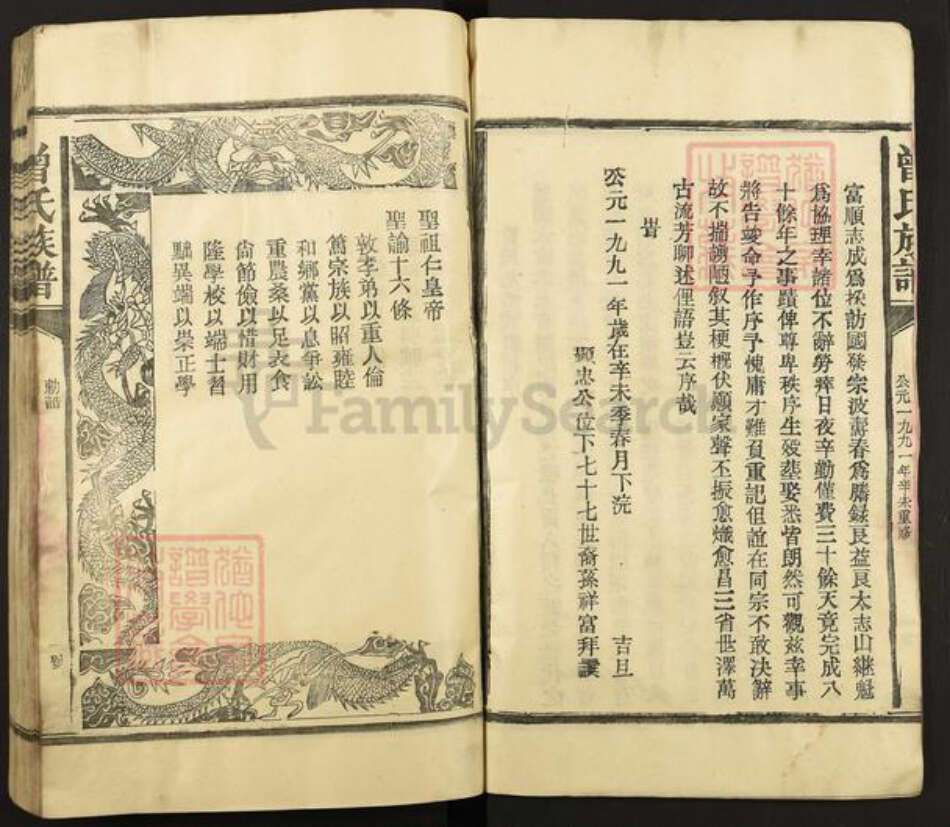 曾氏族譜
公元一九九一年辛未重修
富順志成爲採訪國發宗波壽春爲謄録艮益艮太志山継魁
爲協理幸諸位不辭勞瘁日夜辛勤僅費三十餘天竟完成八
十餘年之事蹟俾尊卑秩序生殁塟娶悉皆朗然可觀兹幸事
將告竣命予作序予愧庸才難負重記但誼在同宗不敢决辭
故不揣謭陋叙其梗概伏願家聲丕振愈熾愈昌三省世澤萬
古流芳聊述俚語豈云序哉
旹
公元一九九一年歲在辛未季春月下浣 吉旦
顯忠公位下七十七世裔孫祥富拜譔
聖祖仁皇帝
聖諭十六條
敦孝弟以重人倫
篤宗族以昭雍睦
和鄉黨以息爭訟
重農桑以足衣食
尚節儉以惜財用
隆學校以端士習
黜異端以崇正學
曾氏族譜
勅誥
FamilySearch